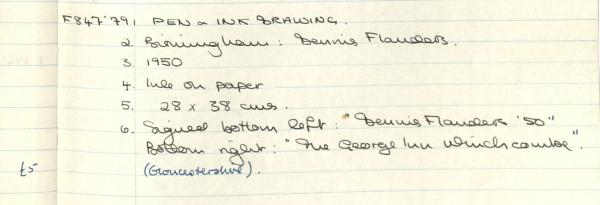 F847'79, PEN & INK DRAWING.
2. Birmingham: Dennis Flanders.
3. 1950
4. Ink on paper
5. 28 x 38 cms.
6. Signed bottom left: "Dennis Flanders '50"
Bottom right: "The George Inn Winchcombe".
£5 (Gloucestershire).